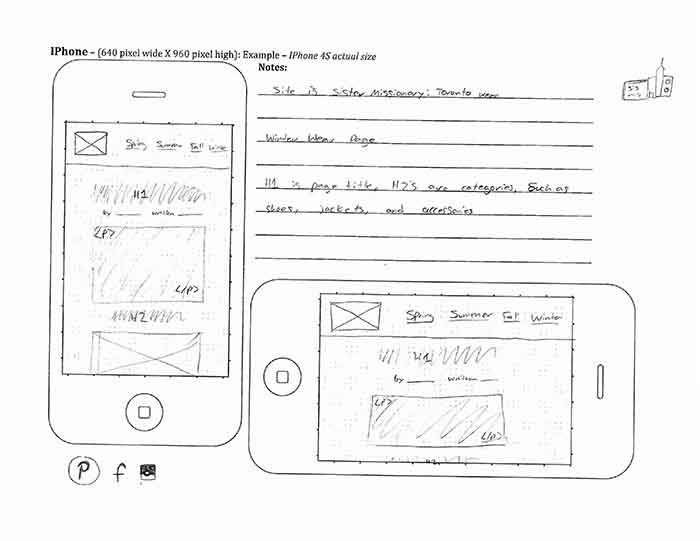 IPhone – [640 pixel wide X 960 pixel high]: Example – IPhone 4S actual size
Notes:
Site is Sister Missionary: Toronto wear
Winter Wear Page
H1 is page title, H2's are categories, such as
shoes, jackets, and accessories
Spring Summer Fall Winter
H1
by written
<P>
</P>
H2
Spring Summer Fall Winter
H1
by written
<P>
</P>
H2
P f